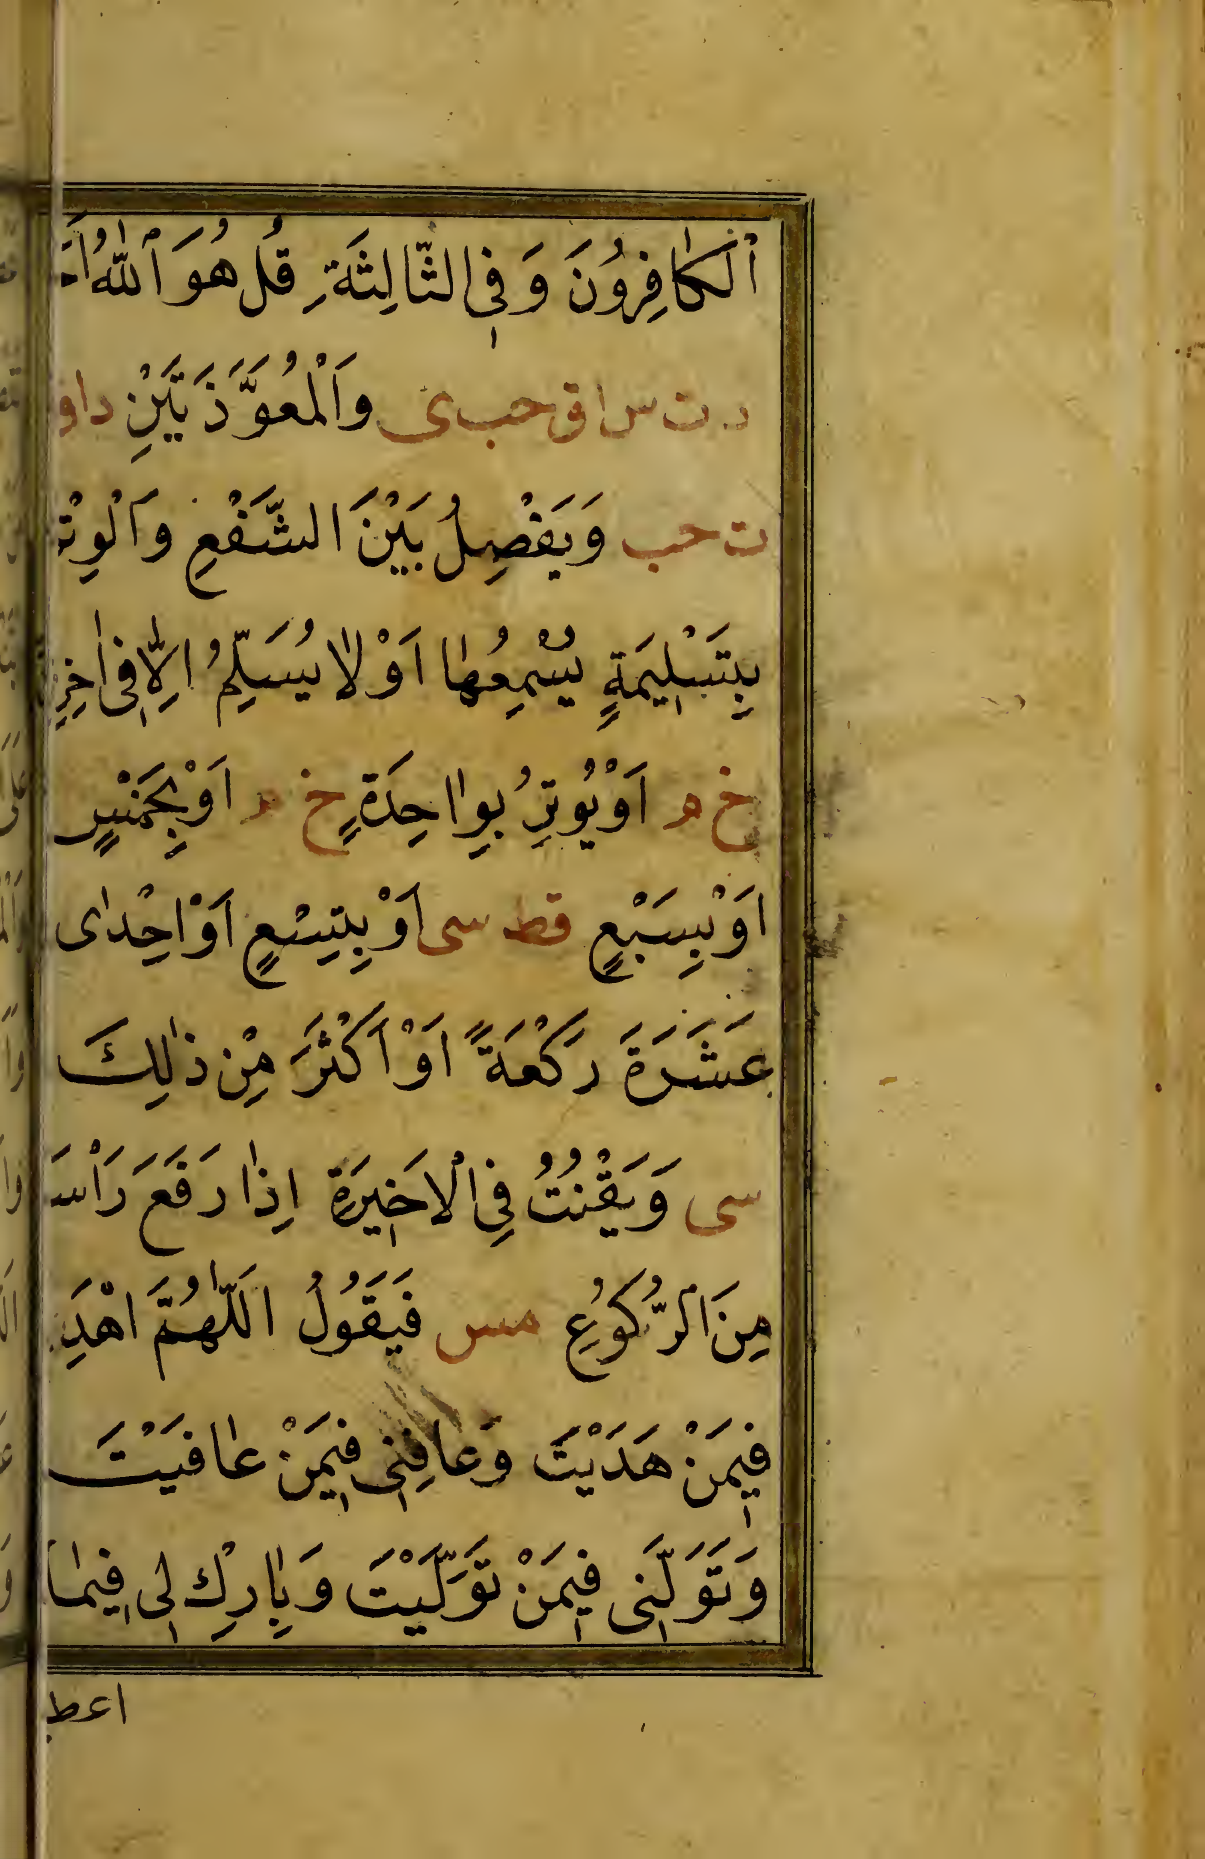 ٱلْكَافِرُونَ وَفِي الثَّالِثَةِ قُلْ هُوَ ٱللّٰهُ
د ت س ا ق حب ى وَٱلْمُعَوَّذَتَيْنِ د ا
ت حب وَيَفْصِلُ بَيْنَ الشَّفْعِ وَٱلْوِتْرِ
بِتَسْلِيمَةٍ يُسْمِعُهَا اَوْ لَا يُسَلِّمُ اِلَّا فِي اٰخِرِهِنَّ
خ م اَوْ يُوتِرُ بِوَاحِدَةٍ خ م اَوْ بِخَمْسٍ
اَوْ بِسَبْعٍ قط سى اَوْ بِتِسْعٍ اَوْ اِحْدٰى
عَشَرَةَ رَكْعَةً اَوْ اَكْثَرَ مِنْ ذٰلِكَ
سى وَيَقْنُتُ فِي الْاَخِيرَةِ اِذَا رَفَعَ رَاْسَ
مِنَ الرُّكُوعِ مس فَيَقُولُ اللّٰهُمَّ اهْدِ
فِيمَنْ هَدَيْتَ وَعَافِنِي فِيمَنْ عَافَيْتَ
وَتَوَلَّنِي فِيمَنْ تَوَلَّيْتَ وَبَارِكْ لِي فِيمَا
اعط